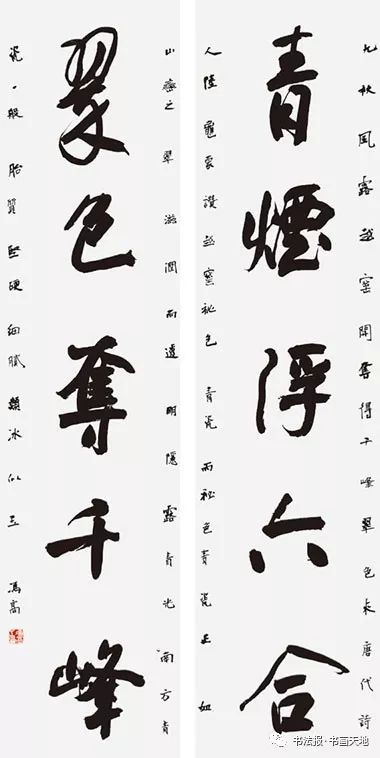 九秋風露越窑開奪得千峰翠色来唐代詩
青煙浮六合
人陸龜蒙讚越窑秘色青瓷而秘色青瓷正如
山巒之翠滋潤而透明隱露青光南方青
翠色奪千峰
瓷一般胎質堅硬細膩類冰似玉 馮高
书法报·书画天地